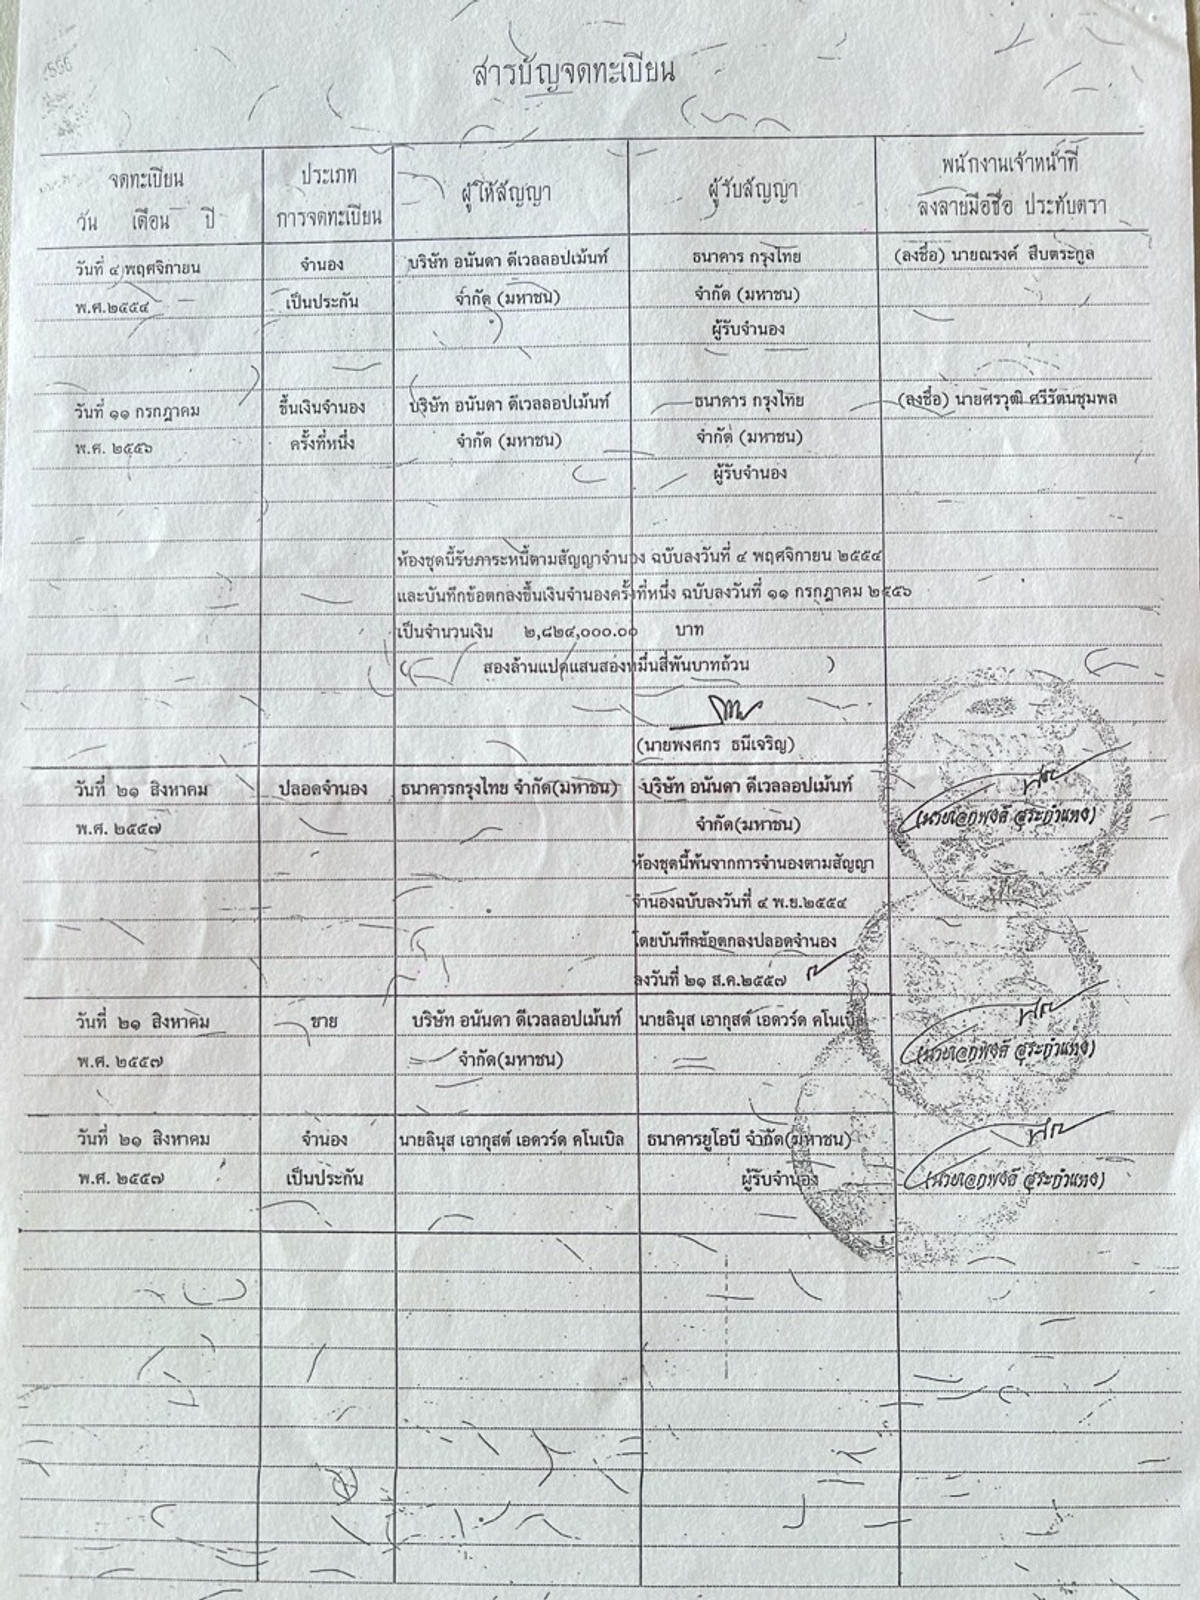 สารบัญจดทะเบียน
จดทะเบียน
วัน เดือน ปี
ประเภท
การจดทะเบียน
ผู้ให้สัญญา
ผู้รับสัญญา
พนักงานเจ้าหน้าที่
ลงลายมือชื่อ ประทับตรา
วันที่ ๔ พฤศจิกายน จำนอง บริษัท อนันดา ดีเวลลอปเม้นท์ ธนาคาร กรุงไทย (ลงชื่อ) นายณรงค์ สืบตระกูล
พ.ศ.๒๕๕๔ เป็นประกัน จำกัด (มหาชน) จำกัด (มหาชน)
ผู้รับจำนอง
วันที่ ๑๑ กรกฎาคม ขึ้นเงินจำนอง บริษัท อนันดา ดีเวลลอปเม้นท์ ธนาคาร กรุงไทย (ลงชื่อ) นายศรวุฒิ ศรีรัตนชุมพล
พ.ศ. ๒๕๕๖ ครั้งที่หนึ่ง จำกัด (มหาชน) จำกัด (มหาชน)
ผู้รับจำนอง
ห้องชุดนี้รับภาระหนี้ตามสัญญาจำนอง ฉบับลงวันที่ ๔ พฤศจิกายน ๒๕๕๔
และบันทึกข้อตกลงขึ้นเงินจำนองครั้งที่หนึ่ง ฉบับลงวันที่ ๑๑ กรกฎาคม ๒๕๕๖
เป็นจำนวนเงิน ๒,๘๒๔,๐๐๐.๐๐ บาท
( สองล้านแปดแสนสองหมื่นสี่พันบาทถ้วน )
(นายพงศกร ธนีเจริญ)
วันที่ ๒๑ สิงหาคม ปลอดจำนอง ธนาคารกรุงไทย จำกัด(มหาชน) บริษัท อนันดา ดีเวลลอปเม้นท์
พ.ศ. ๒๕๕๗ จำกัด(มหาชน) (นายเอกพงศ์ สุระกำแหง)
ห้องชุดนี้พ้นจากการจำนองตามสัญญา
จำนองฉบับลงวันที่ ๔ พ.ย.๒๕๕๔
โดยบันทึกข้อตกลงปลอดจำนอง
ลงวันที่ ๒๑ ส.ค.๒๕๕๗
วันที่ ๒๑ สิงหาคม ขาย บริษัท อนันดา ดีเวลลอปเม้นท์ นายลินุส เอากุสต์ เอดวอร์ด คโนเบิล
พ.ศ. ๒๕๕๗ จำกัด(มหาชน) (นายเอกพงศ์ สุระกำแหง)
วันที่ ๒๑ สิงหาคม จำนอง นายลินุส เอากุสต์ เอดวอร์ด คโนเบิล ธนาคารยูโอบี จำกัด(มหาชน)
พ.ศ. ๒๕๕๗ เป็นประกัน ผู้รับจำนอง (นายเอกพงศ์ สุระกำแหง)